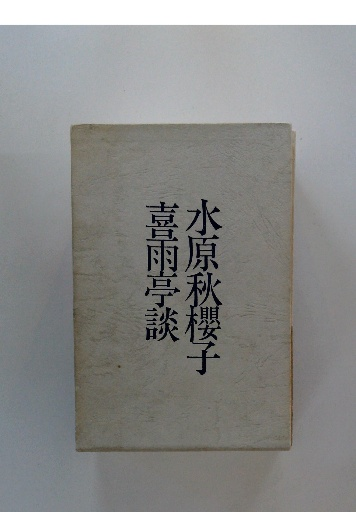 水原秋櫻子
喜雨亭談